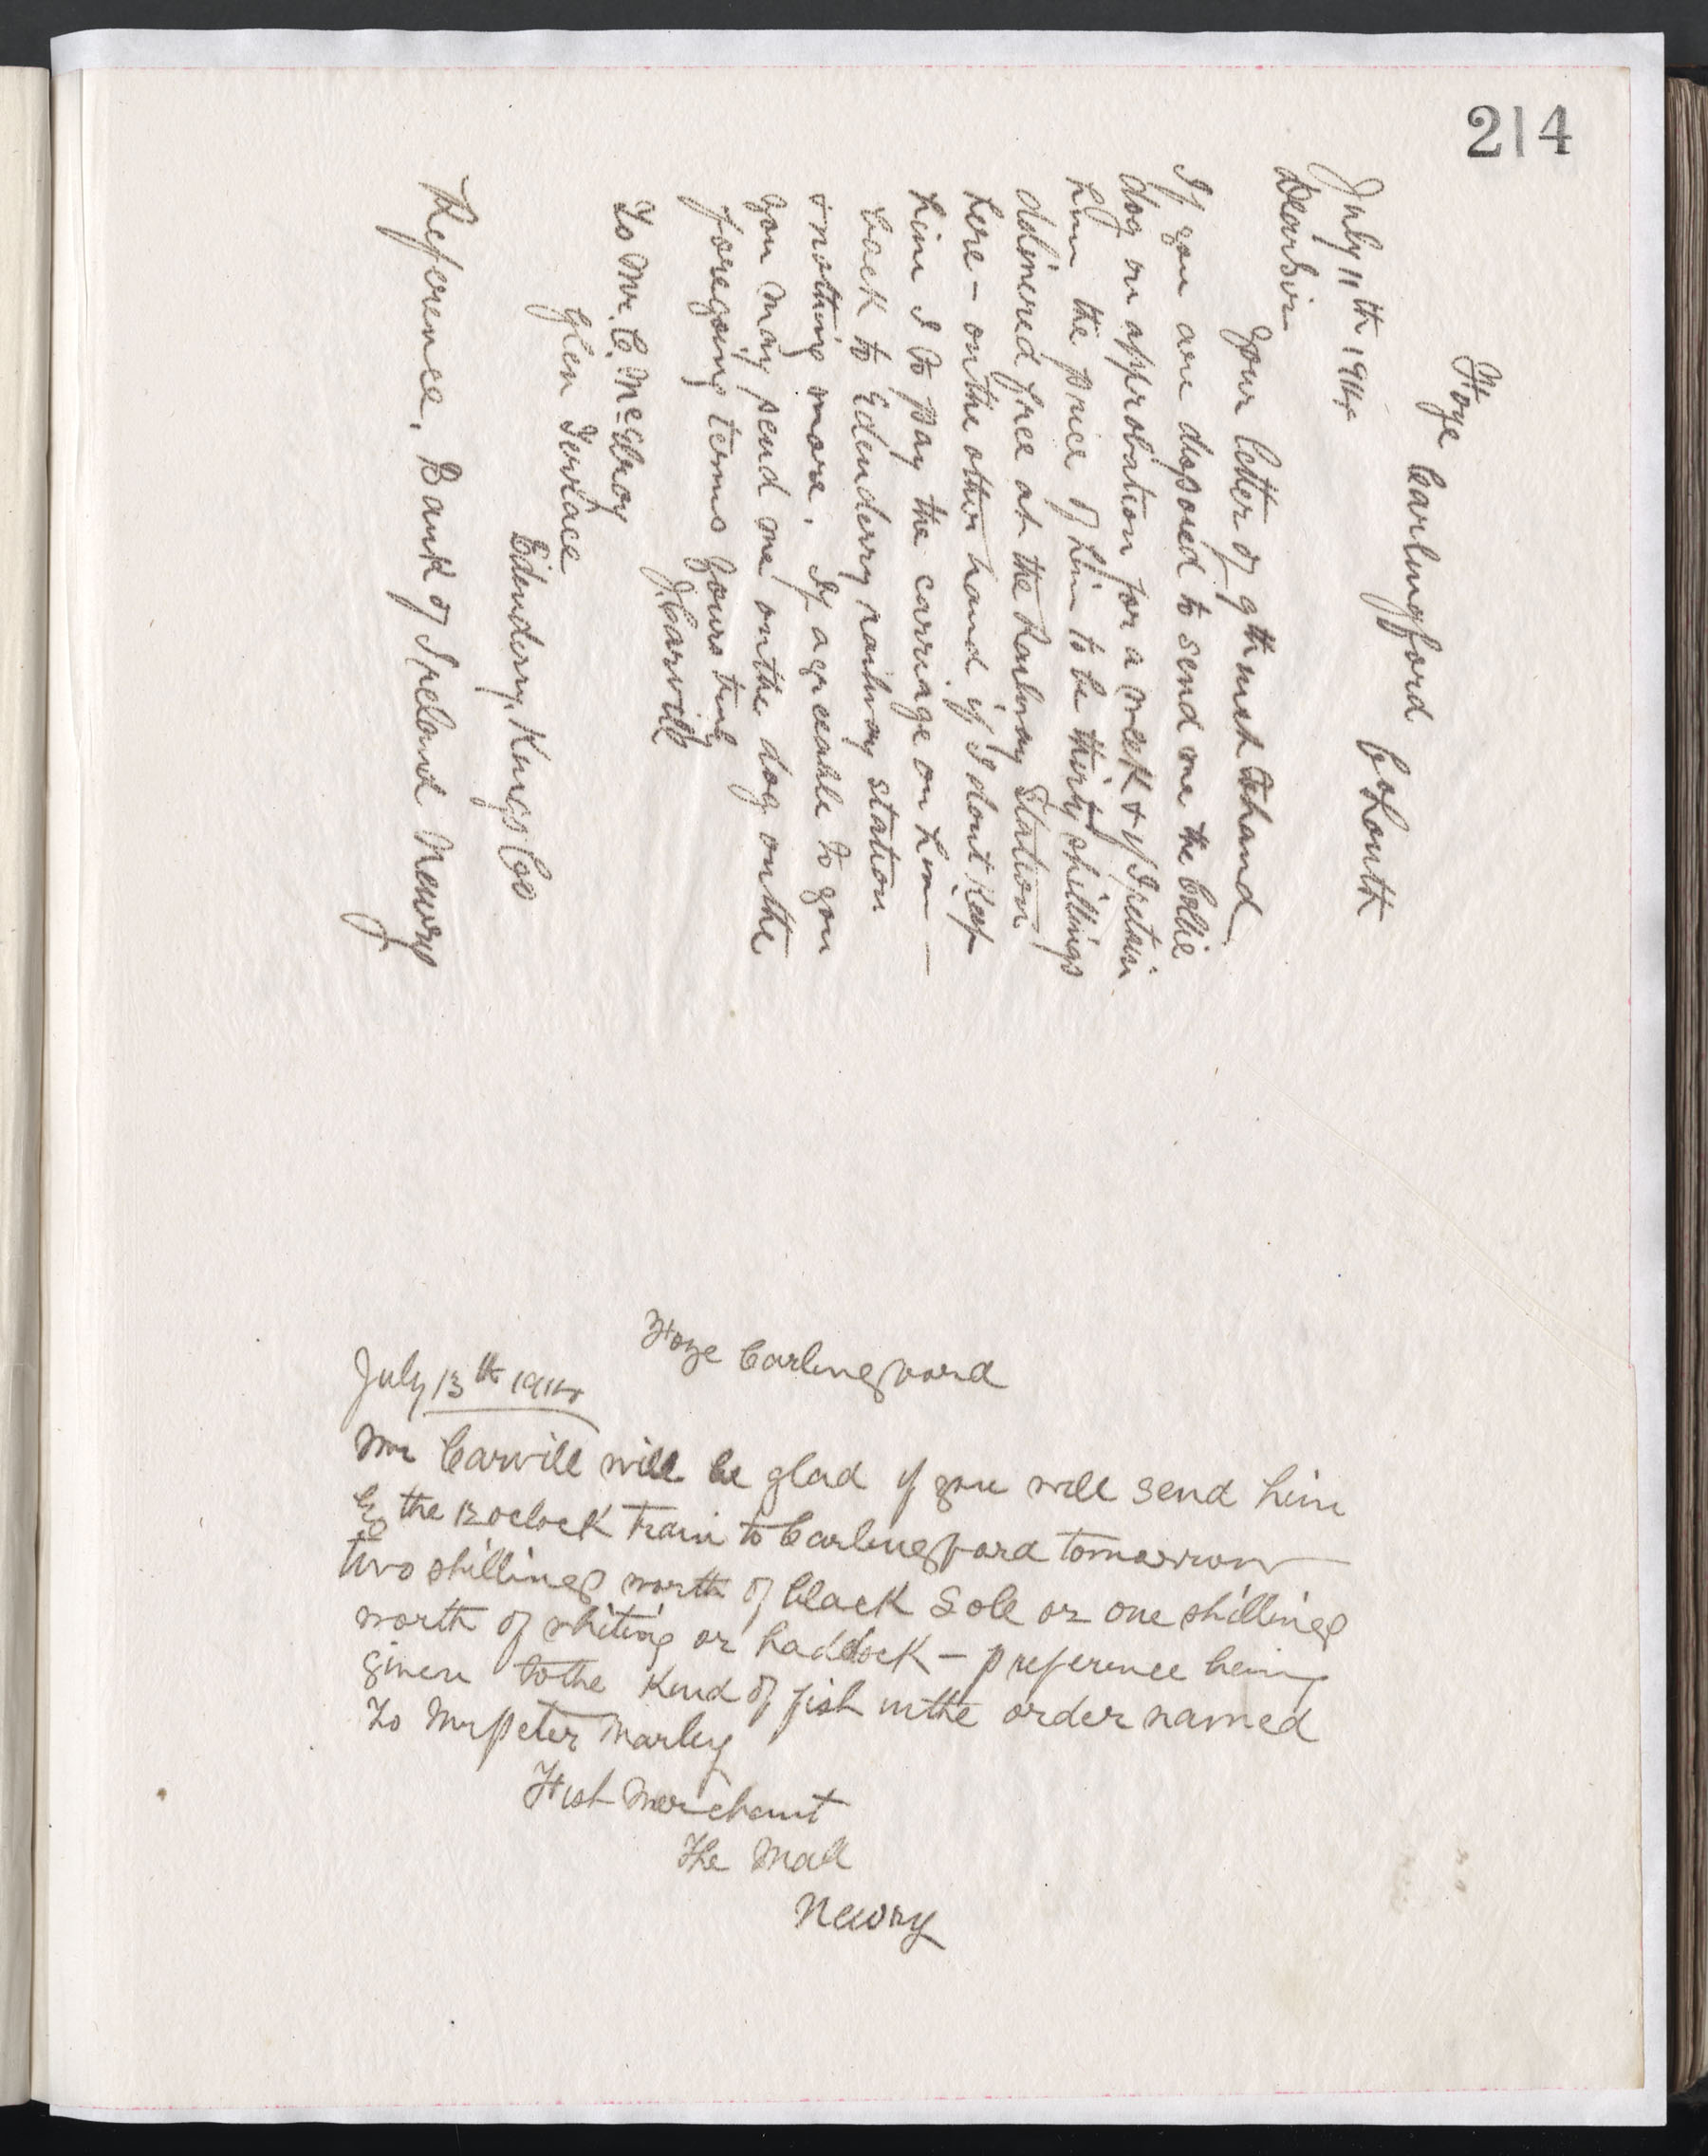 214
Foye Carlingford Co Louth
July 11th 1914
Dear Sir
Your letter of 9th inst to hand
If you are disposed to send me the Collie
dog on approbation for a week & if I retain
him the price of him to be thirty shillings
delivered free at the Railway Station
here - on the other hand if I dont keep
him I to pay the carriage on him —
back to Edenderry railway station
& nothing more. If agreeable to you
you may send me on the dog on the
foregoing terms Yours truly
J. Carvill
To Mr. C. McElroy
Glen Terrace
Edenderry, Kings Co
Reference, Bank of Ireland Newry
Foye Carlingford
July 13th 1914
Mr Carvill will be glad if you will send him
by the 12 oclock train to Carlingford tomorrow
two shillings worth of black Sole or one shillings
worth of whiting or haddock - preference being
given to the kind of fish in the order named
To Mr Peter Marley
Fish Merchant
The Mall
Newry